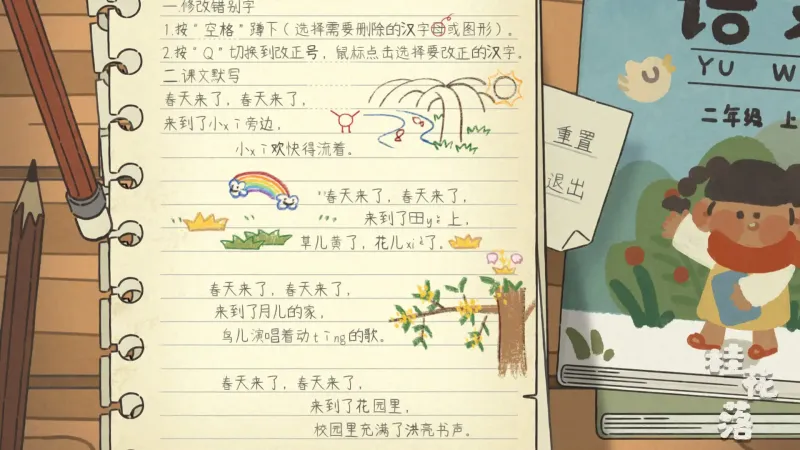 一.修改错别字
1.按“空格”蹲下（选择需要删除的汉字或图形）。
2.按“Q”切换到改正号，鼠标点击选择要改正的汉字。
二.课文默写
春天来了，春天来了，
来到了小xī旁边，
小xī欢快得流着。
春天来了，春天来了，
来到了田yě上，
草儿黄了，花儿xiè了。
春天来了，春天来了，
来到了月儿的家，
鸟儿演唱着动tīng的歌。
春天来了，春天来了，
来到了花园里，
校园里充满了洪亮书声。
重置
退出
语
YU W
二年级 上
桂花落